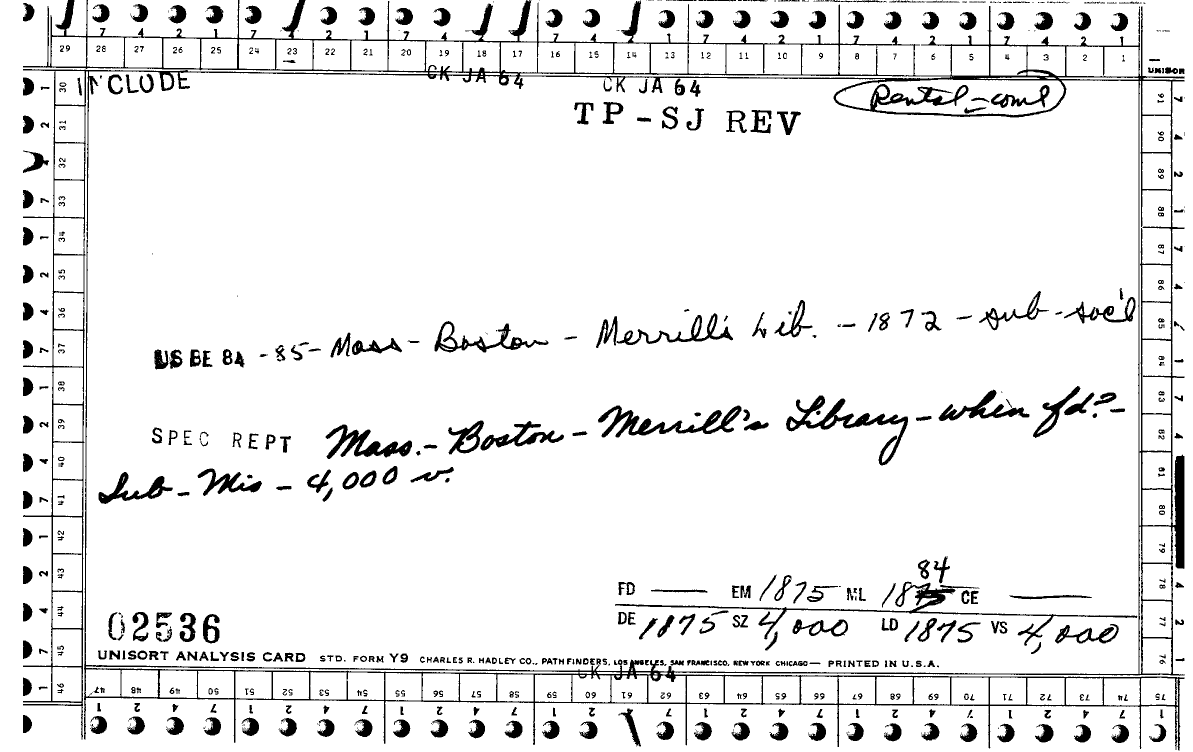 7 4 2 1 7 4 2 1 7 4 2 1 7 4 2 1 7 4 2 1 7 4 2 1
29 28 27 26 25 24 23 22 21 20 19 18 17 16 15 14 13 12 11 10 9 8 7 6 5 4 3 2 1 UNISORT
INCLUDE CK JA 64 CK JA 64 Rental-coml
TP-SJ REV
US BE 84 -85- Mass - Boston - Merrill's Lib. - 1872 - sub - soc'l
SPEC REPT Mass. - Boston - Merrill's Library - when fd? -
Sub - Mis - 4,000 v.
84
FD — EM 1875 ML 1875 CE —
DE 1875 SZ 4,000 LD 1875 VS 4,000
02536
UNISORT ANALYSIS CARD STD. FORM Y9 CHARLES R. HADLEY CO., PATHFINDERS, LOS ANGELES, SAN FRANCISCO, NEW YORK CHICAGO — PRINTED IN U.S.A.
CK JA 64
30 31 32 33 34 35 36 37 38 39 40 41 42 43 44 45 46
47 48 49 50 51 52 53 54 55 56 57 58 59 60 61 62 63 64 65 66 67 68 69 70 71 72 73 74 75
91 90 89 88 87 86 85 84 83 82 81 80 79 78 77 76